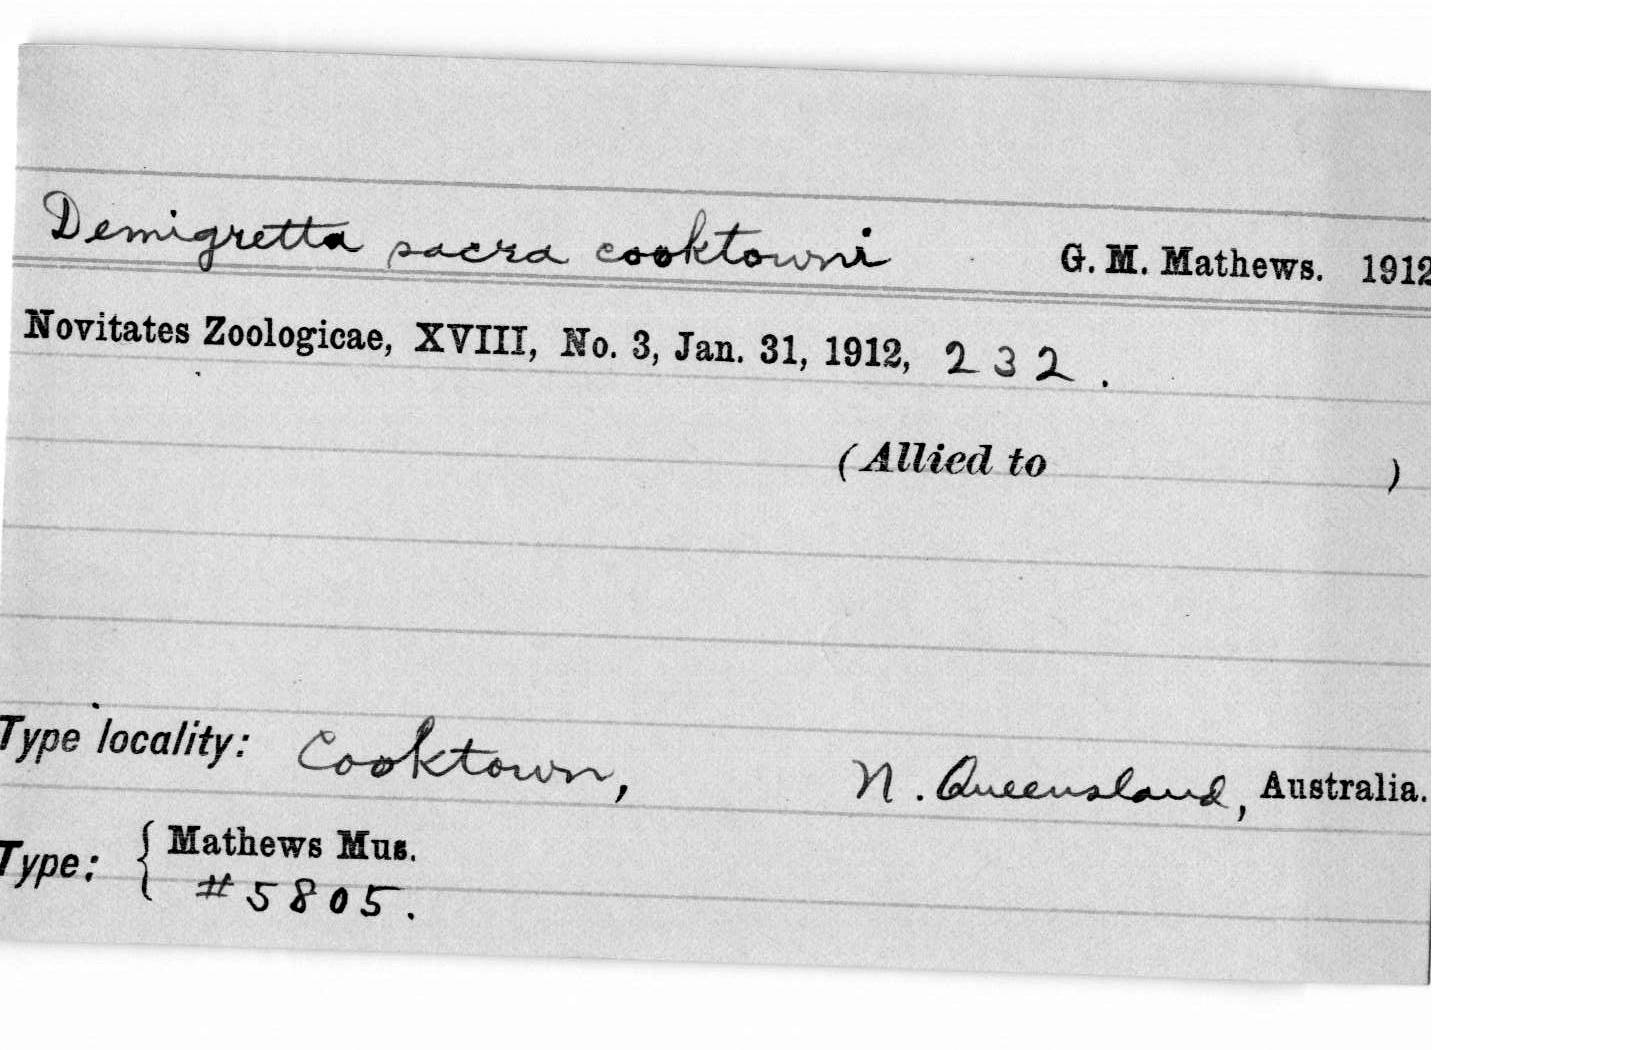 Demigretta sacra cooktowni G. M. Mathews. 1912
Novitates Zoologicae, XVIII, No. 3, Jan. 31, 1912, 232.
(Allied to )
Type locality: Cooktown, N. Queensland, Australia.
Type: { Mathews Mus.
#5805.